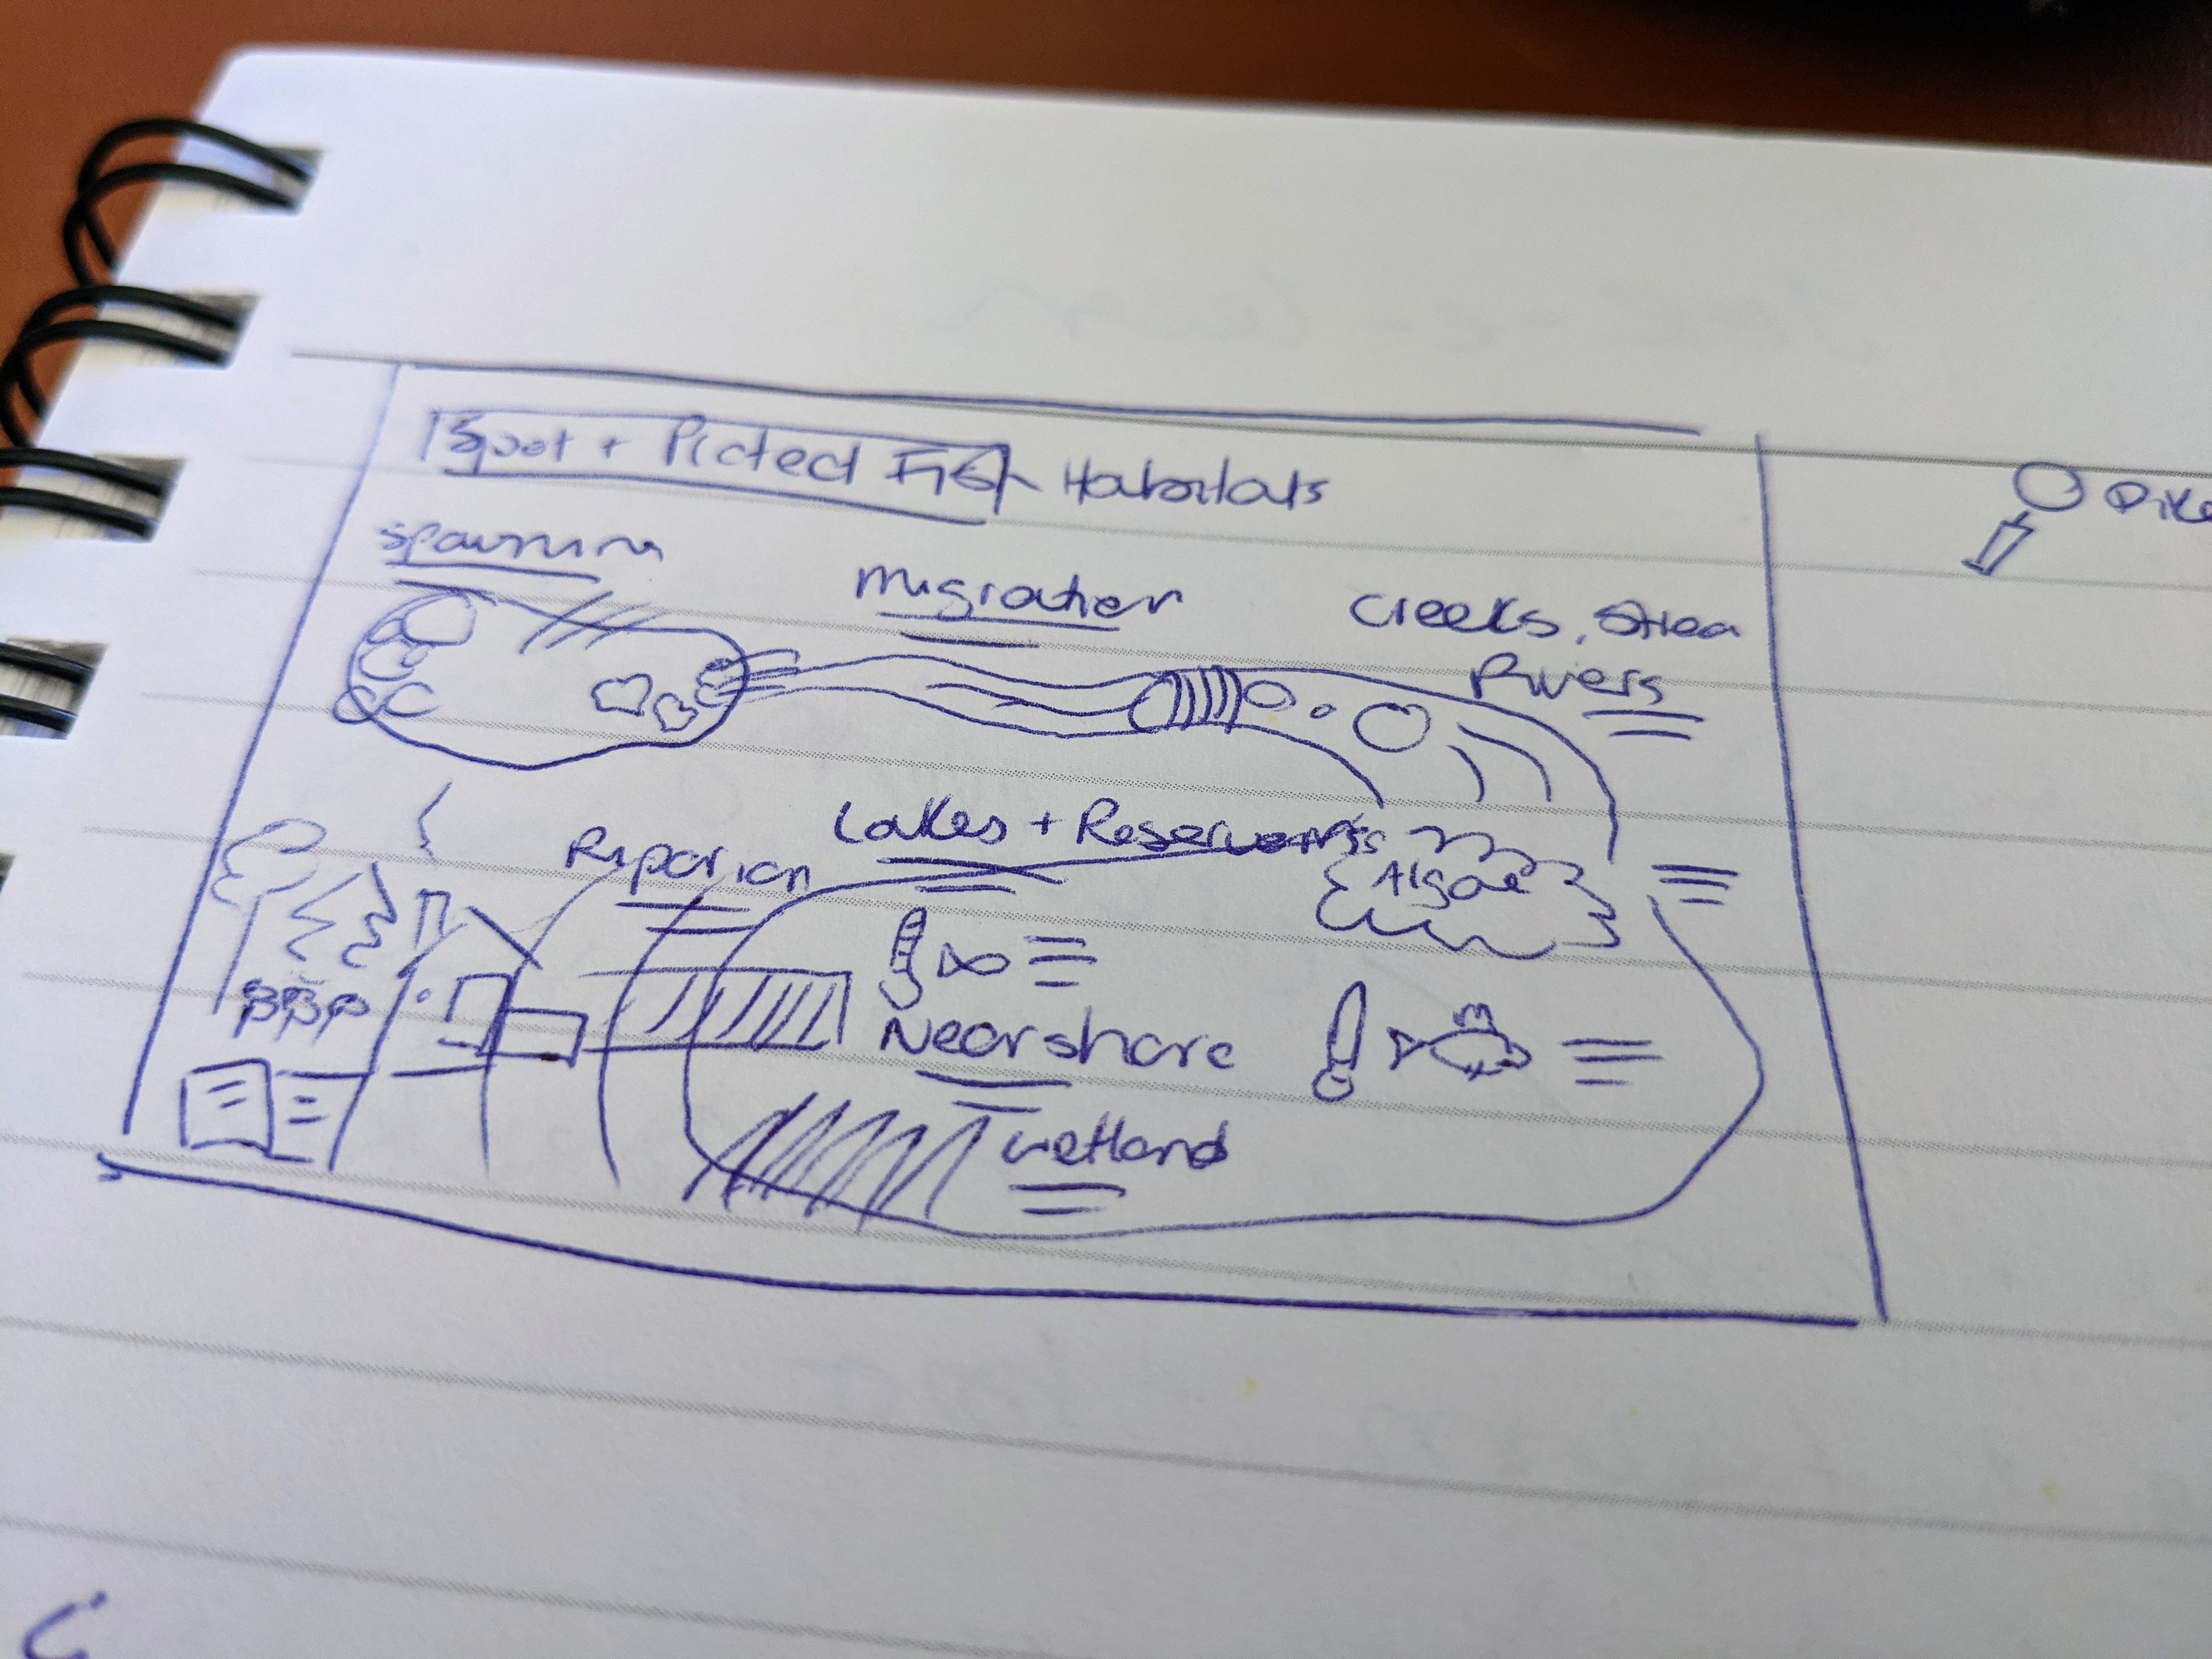 Spot + Picted Fish Habitats
spawnin
Migration
Creeks, Strea
Rivers
Riparian
Lakes + Reservoirs
Algae
Nearshore
wetland